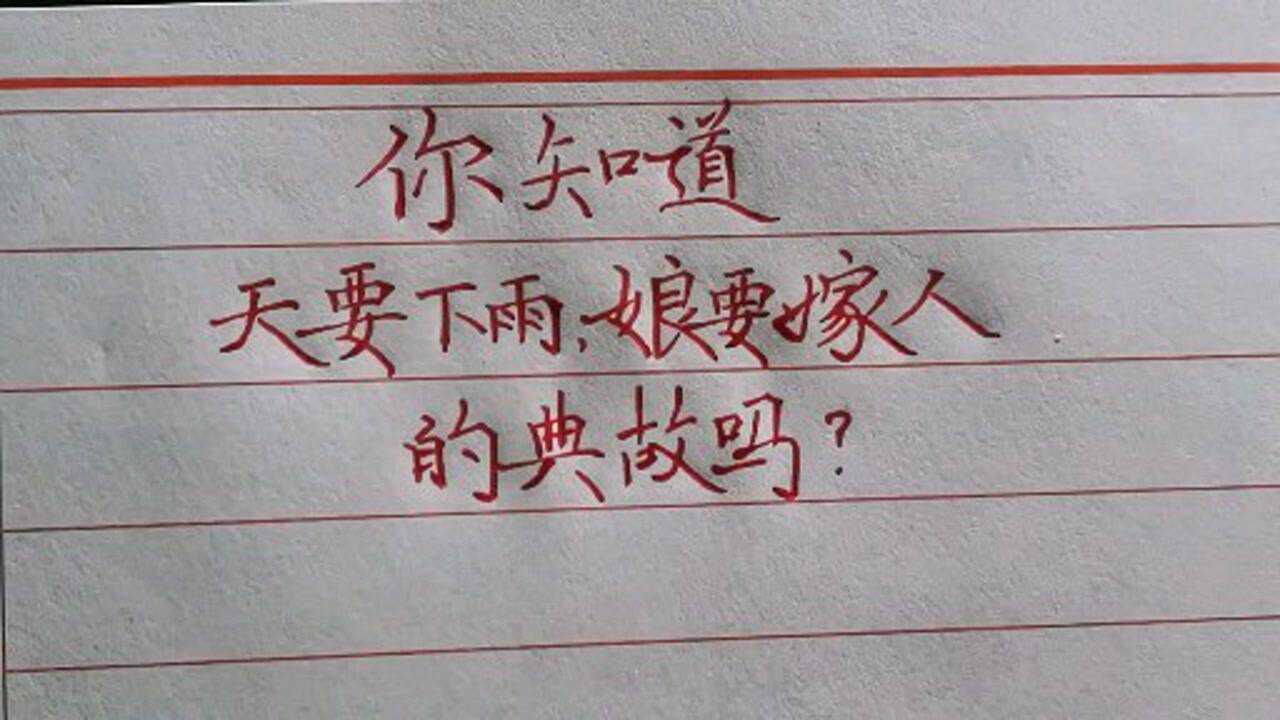 你知道
天要下雨,娘要嫁人
的典故吗?